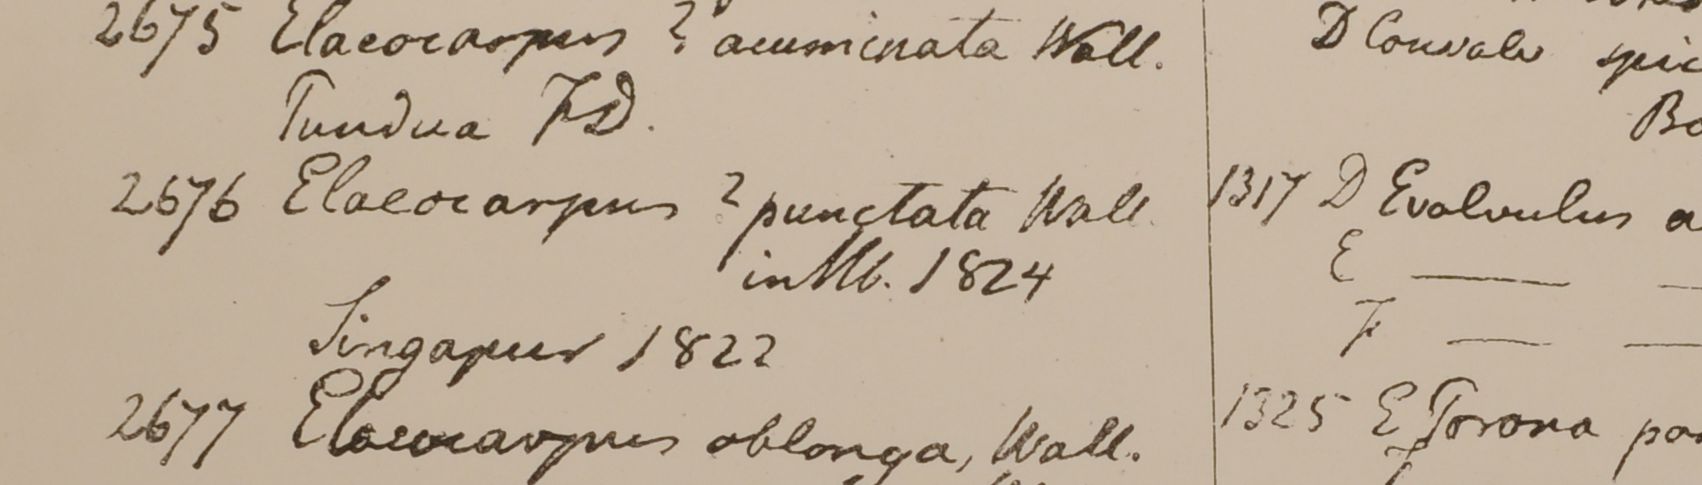 2675 Elaeocarpus ? acuminata Wall.
Tundua FD.
2676 Elaeocarpus ? punctata Wall
in Hb. 1824
Singapur 1822
2677 Elaeocarpus oblonga, Wall.
D Convolv
1317 D Evolvulus
E
F
1325 E Porana
F